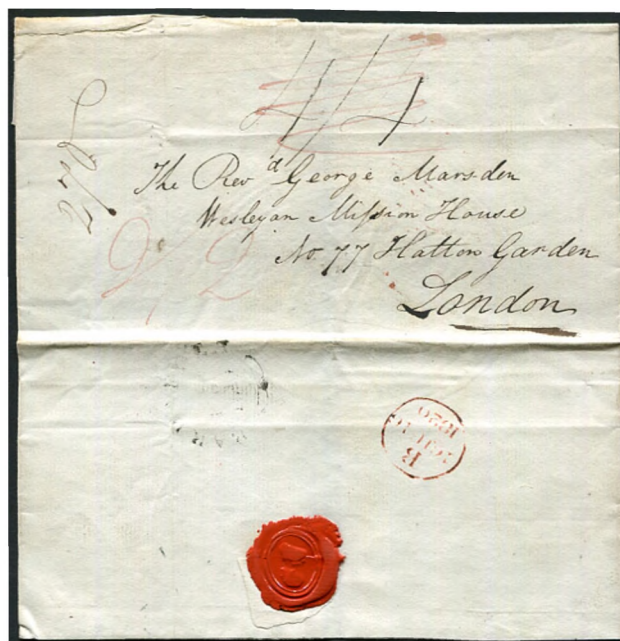 4/4
The Rev'd George Marsden
Wesleyan Mission House
No. 77 Hatton Garden
London
2/2
B
1820